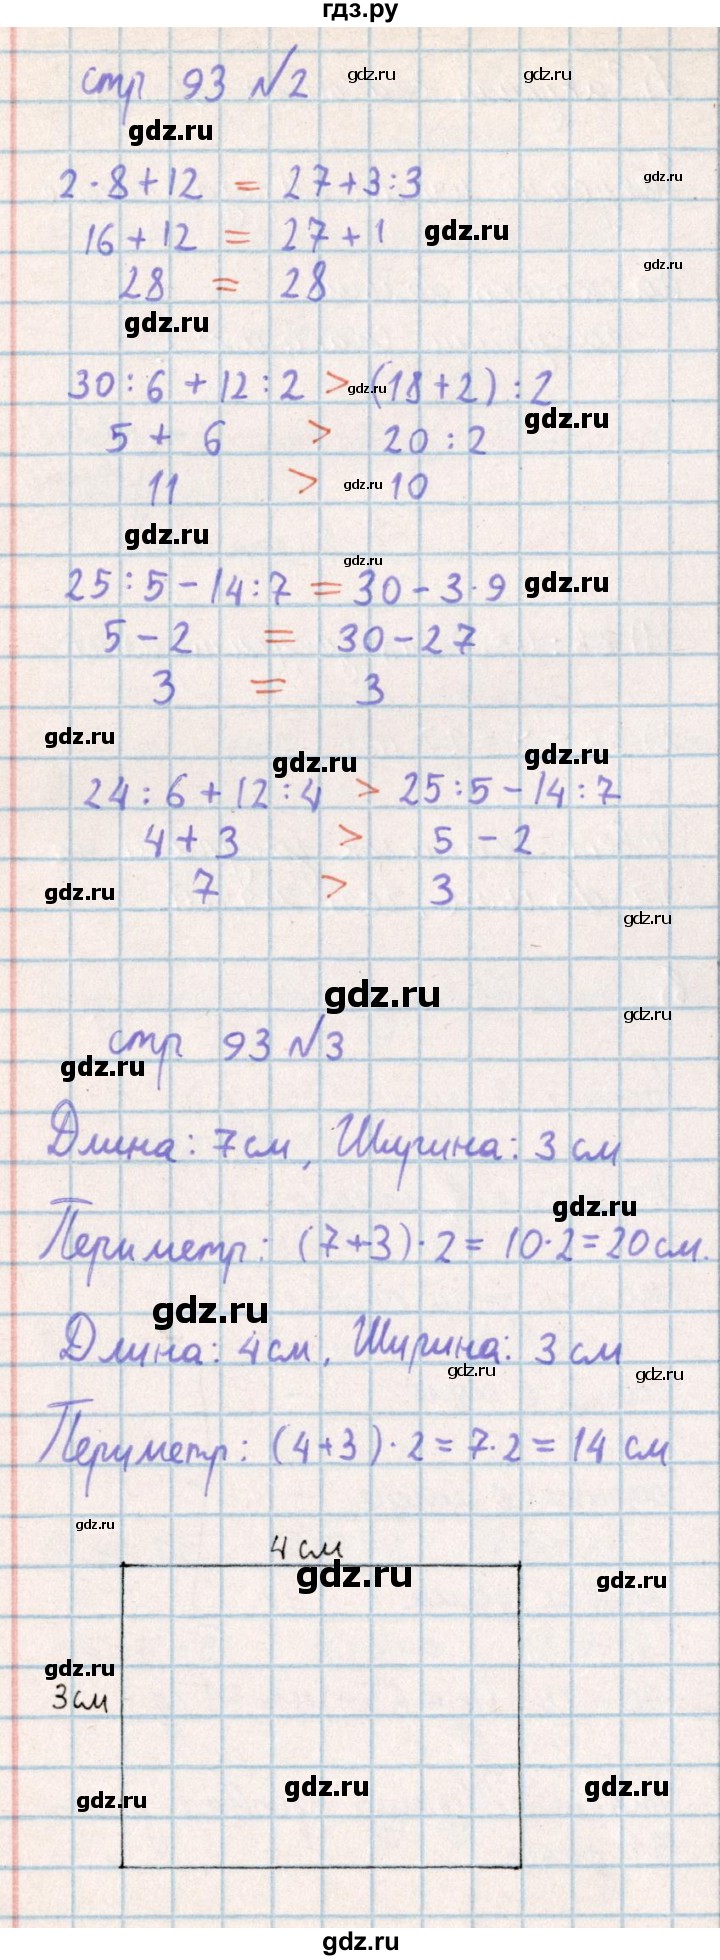 гдз.ру
стр 93 №2
gdz.ru gdz.ru
gdz.ru
2·8+12 = 27+3:3
gdz.ru
16+12 = 27+1
gdz.ru
gdz.ru
28 = 28
gdz.ru
30:6+12:2 > (18+2):2
gdz.ru
gdz.ru
5+6 > 20:2
11 > 10
gdz.ru
gdz.ru
gdz.ru
25:5-14:7 = 30-3·9
gdz.ru
5-2 = 30-27
3 = 3
gdz.ru
gdz.ru
gdz.ru
24:6+12:4 > 25:5-14:7
4+3 > 5-2
7 > 3
gdz.ru
gdz.ru
gdz.ru
gdz.ru
стр 93 №3
gdz.ru
Длина: 7 см, Ширина: 3 см
gdz.ru
Периметр: (7+3)·2=10·2=20 см.
gdz.ru
Длина: 4 см, Ширина: 3 см
gdz.ru
gdz.ru
Периметр: (4+3)·2=7·2=14 см
gdz.ru
4 см
gdz.ru
gdz.ru
gdz.ru
3 см
gdz.ru
gdz.ru
gdz.ru
gdz.ru